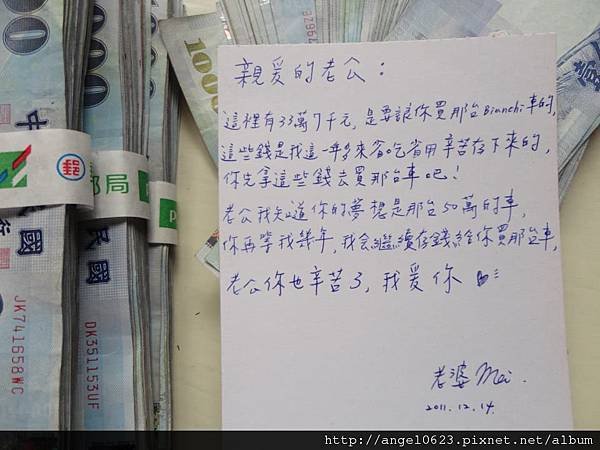 親爱的老公：
這裡有33萬7千元，是要讓你買那台Bianchi車的，
這些錢是我這一年多來省吃省用辛苦存下來的，
你先拿這些錢去買那台車吧！
老公我知道你的夢想是那台50萬的車，
你再等我幾年，我會繼續存錢給你買那台車，
老公你也辛苦了，我爱你
老婆Mei.
2011.12.14.
1000
00
中
民國
郵局
郵
JK741658WC
DK351153UF
http://angel0623.pixnet.net/album